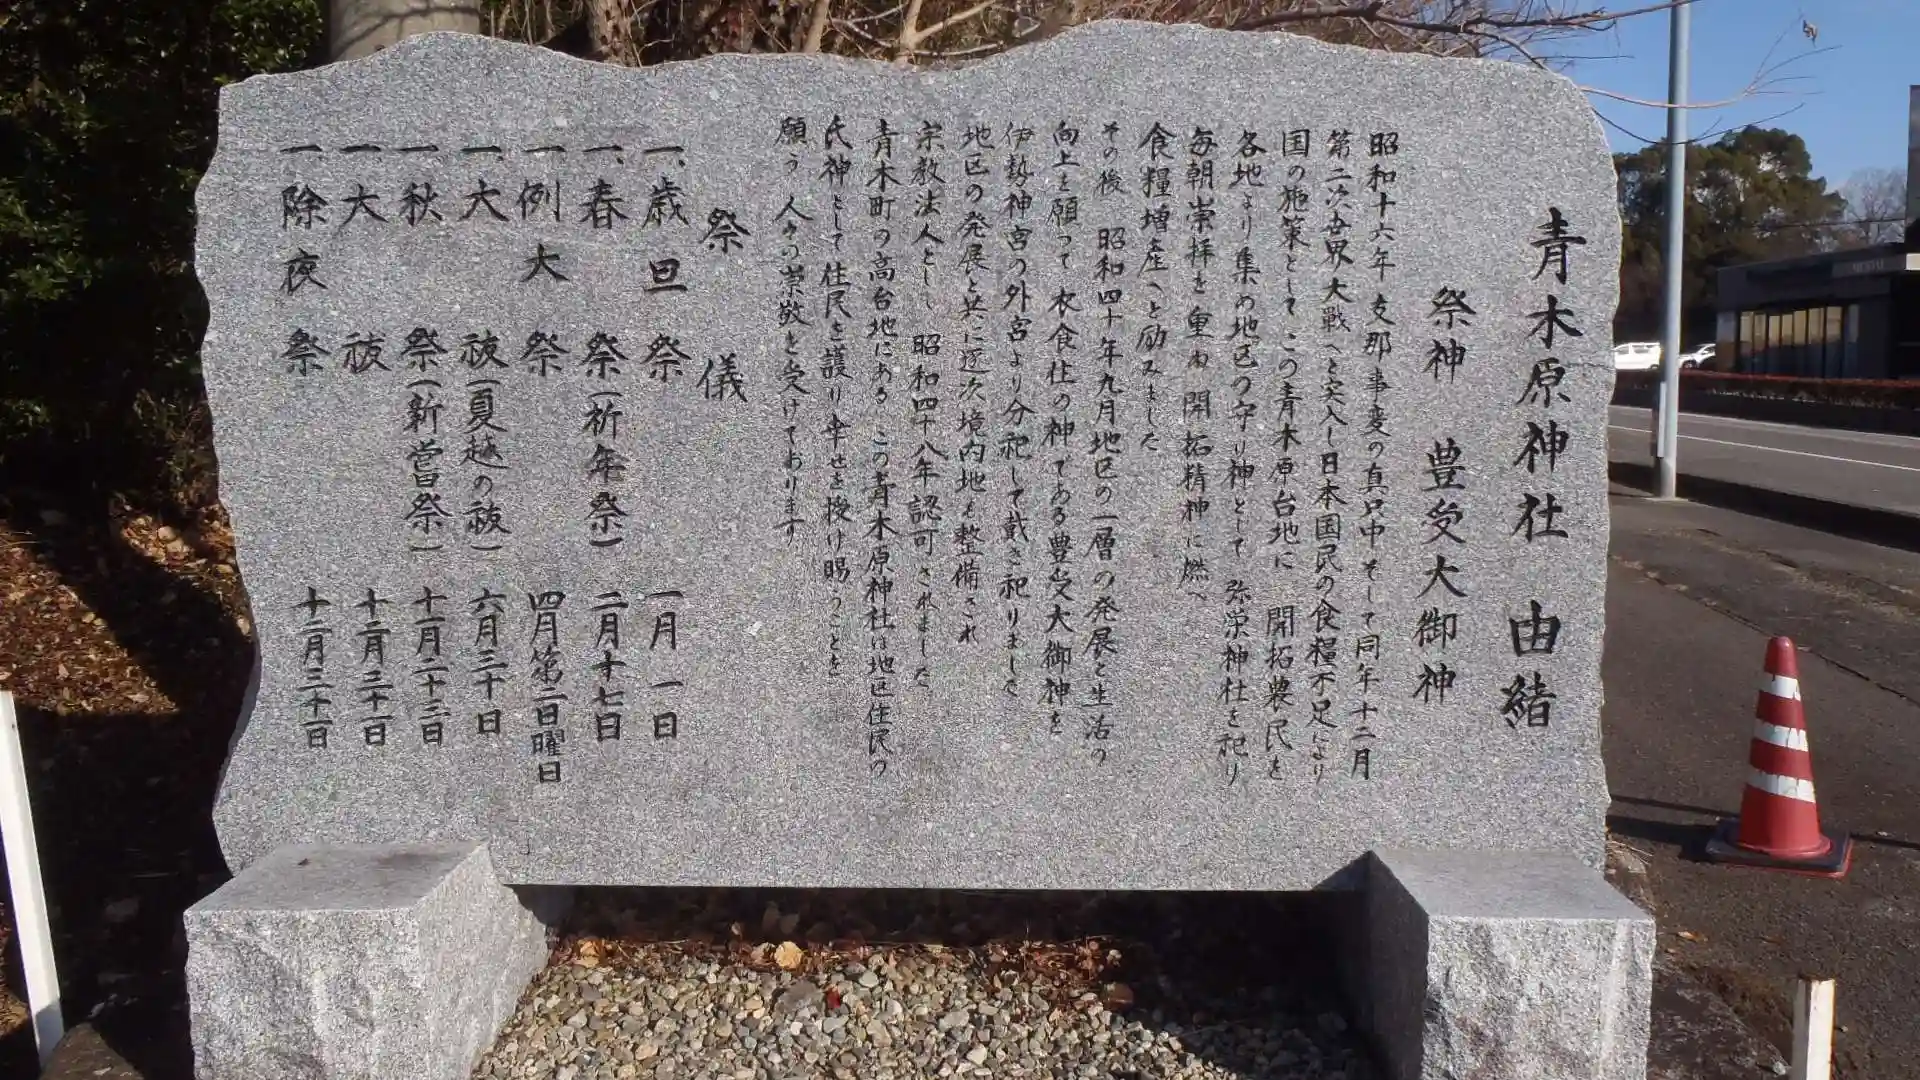 青木原神社 由緒
祭神 豊受大御神
昭和十六年 支那事変の真只中 そして同年十二月
第二次世界大戦へと突入し日本国民の食糧不足により
国の施策として この青木原台地に 開拓農民を
各地より集め地区の守り神として 弥栄神社を祀り
毎朝崇拝を重ね 開拓精神に燃へ
食糧増産へと励みました
その後 昭和四十年九月地区の一層の発展と生活の
向上を願って 衣食住の神である豊受大御神を
伊勢神宮の外宮より分祀して戴き祀りました
地区の発展と共に逐次境内地も整備され
宗教法人として 昭和四十八年 認可されました
青木町の高台地にある この青木原神社は地区住民の
氏神として 住民を護り幸せを授け賜うことを
願う 人々の崇敬を受けております
祭 儀
一、歳旦祭 一月一日
一、春祭(祈年祭) 二月十七日
一、例大祭 四月第二日曜日
一、大祓(夏越の祓) 六月三十日
一、秋祭(新嘗祭) 十一月二十三日
一、大祓 十二月三十一日
一、除夜祭 十二月三十一日